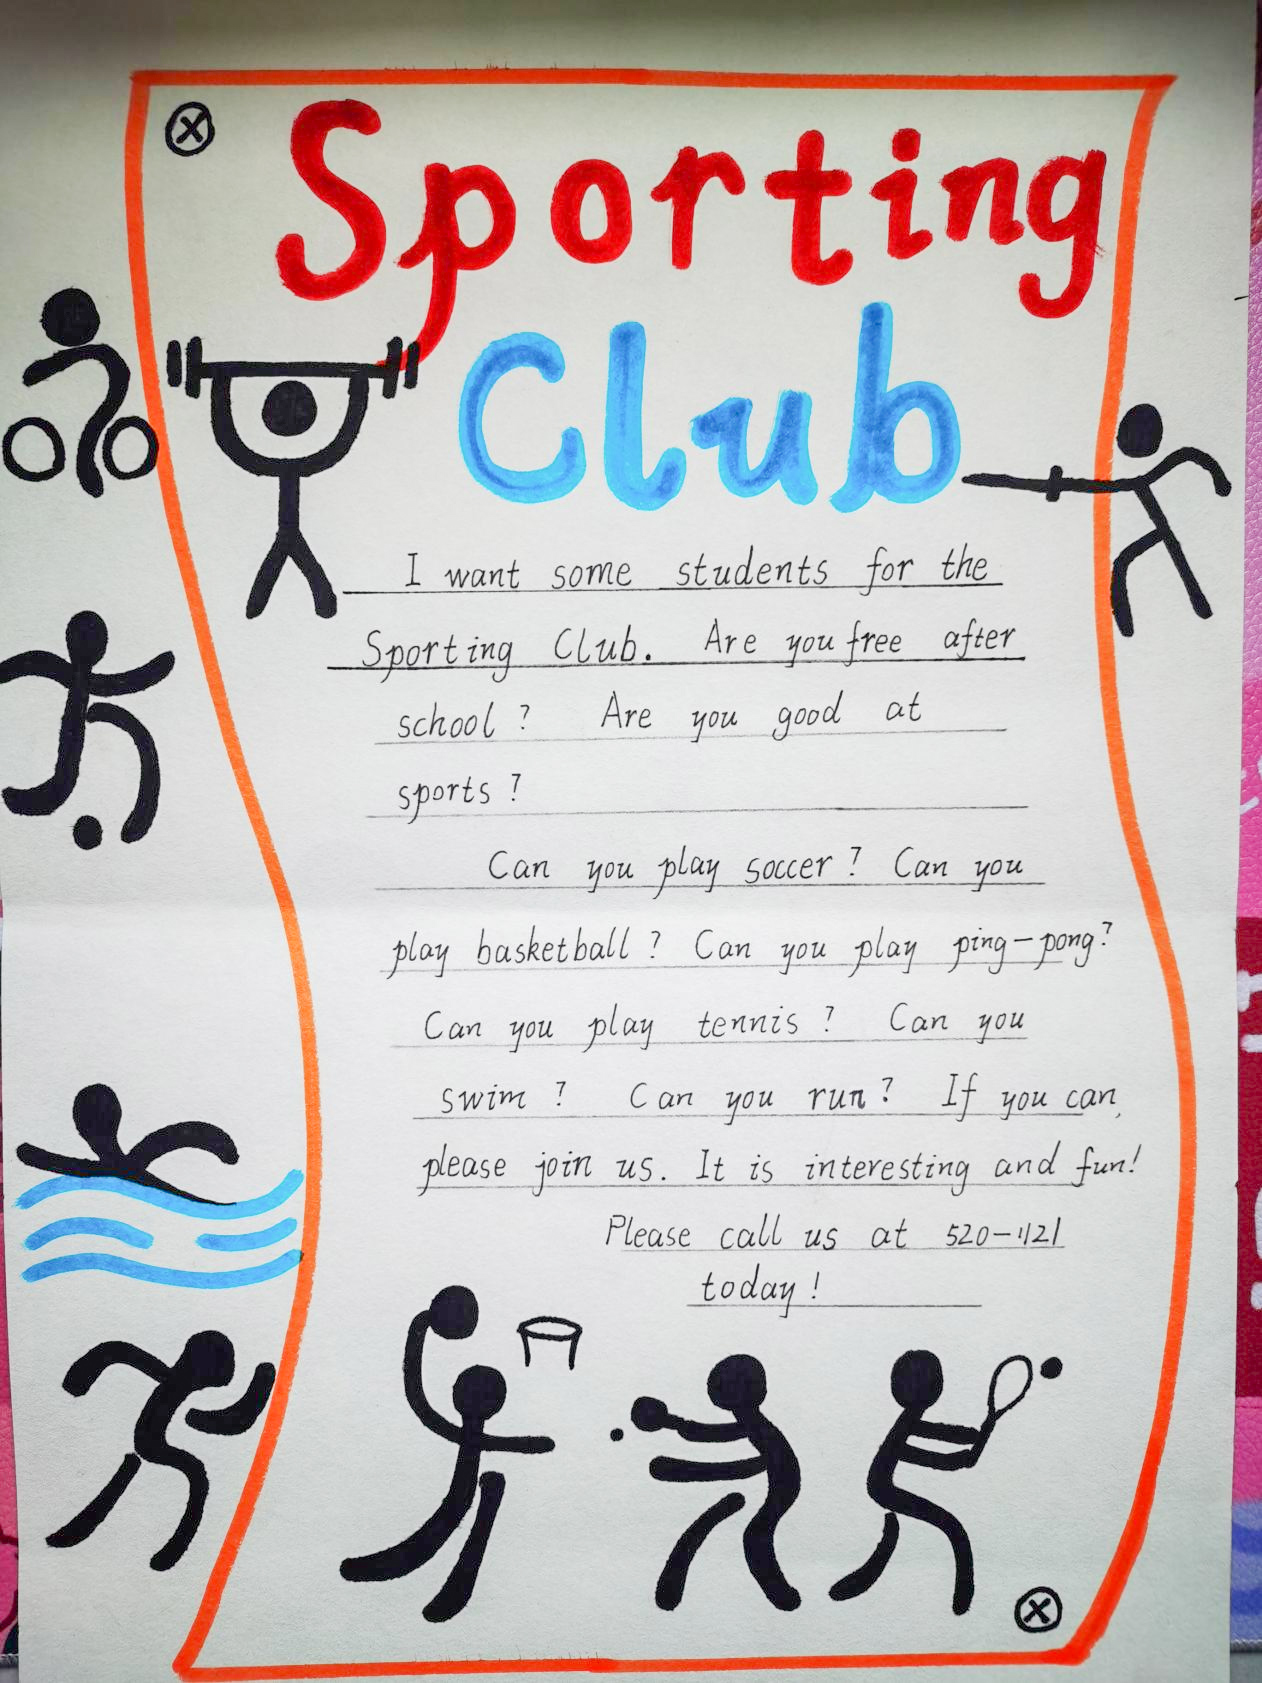 Sporting
Club
I want some students for the
Sporting Club. Are you free after
school ? Are you good at
sports ?
Can you play soccer ? Can you
play basketball ? Can you play ping-pong?
Can you play tennis ? Can you
swim ? Can you run ? If you can,
please join us. It is interesting and fun!
Please call us at 520-1121
today !